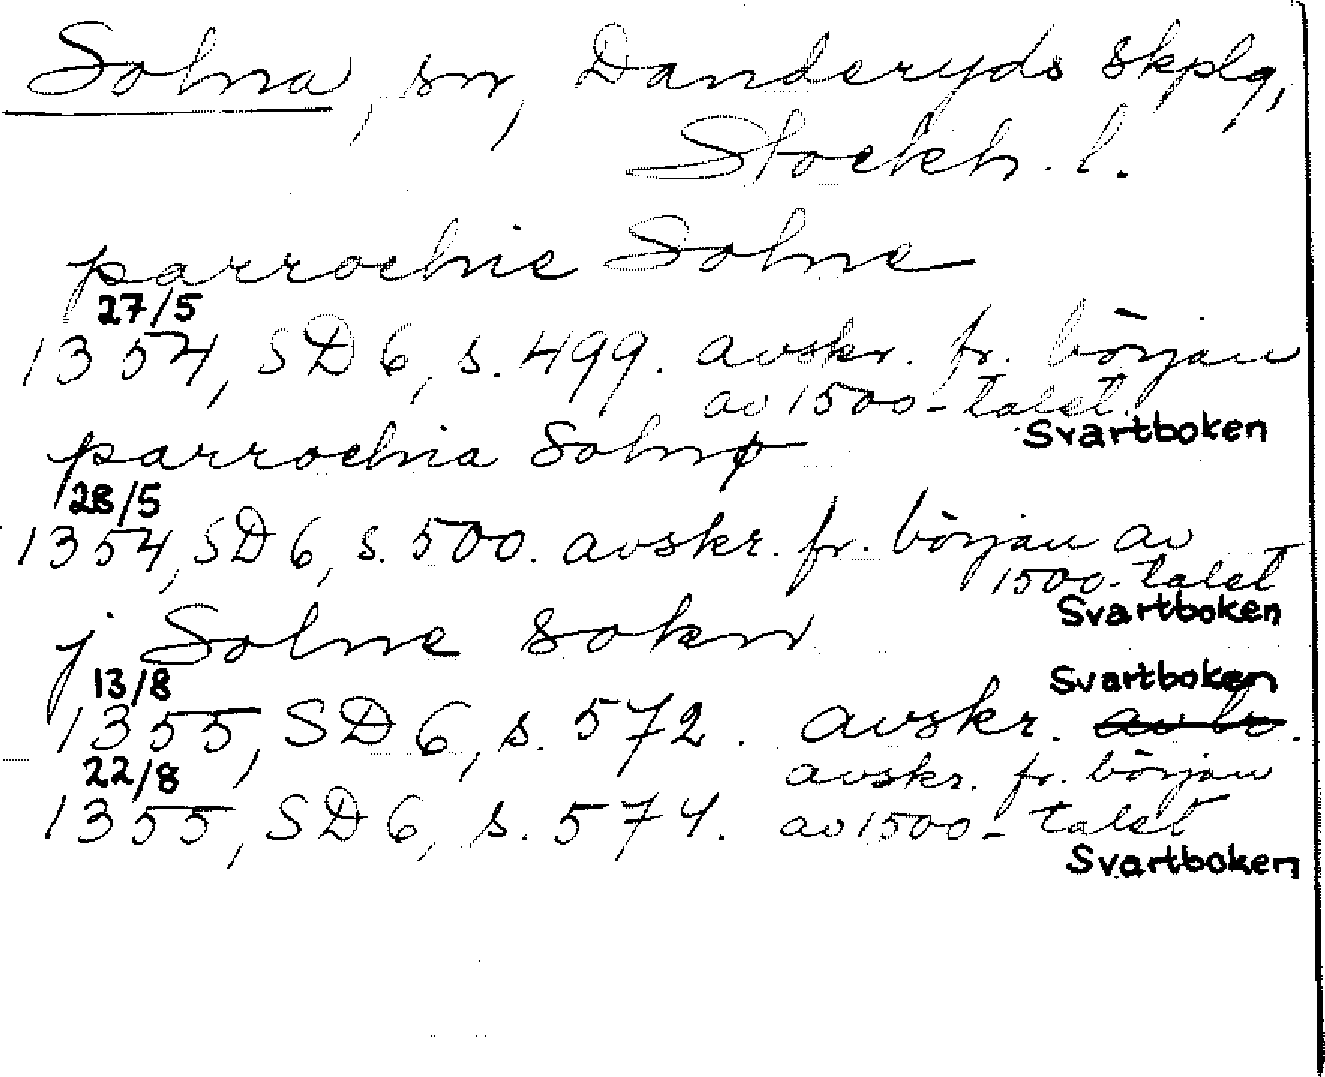 Solna, sn, Danderyds skplg,
Stockh. l.
parrochie Solne
27/5
1354, SD 6, s. 499. avskr. fr. början
av 1500-talet.
Svartboken
parrochia Solnø
28/5
1354, SD 6, s. 500. avskr. fr. början av
1500-talet
Svartboken
j Solne sokn
13/8 Svartboken
1355, SD 6, s. 572. avskr. av br.
22/8 avskr. fr. början
1355, SD 6, s. 574. av 1500-talet
Svartboken